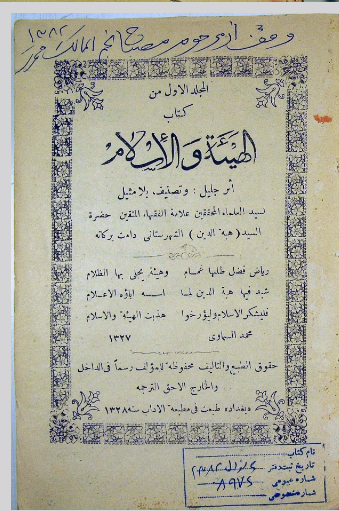 المجلد الاول من
كتاب
الهيئة والاسلام
أثر جليل : وتصنيف بلا مثيل
لسيد العلماء المحققين علامة الفقهاء المتقين حضرة
السيد ( هبة الدين ) الشهرستاني دامت بركاته
رياض فضل طلها غمام وهيئة يجلى بها الظلام
شيد فيها هبة الدين لنا اسسه اباؤه الاعلام
فليشكر الاسلام وليؤرخوا هذبت الهيئة والاسلام
محمد السماوي ١٣٢٧
حقوق الطبع والتاليف محفوظة للمؤلف رسماً في الداخل
والخارج الاحق الترجمه
وبغداده طبعت في مطبعة الاداب سنه ١٣٢٨
نام کتاب
تاریخ ثبت دفتر
شماره عمومی ٨٩٧٤
شماره خصوصی